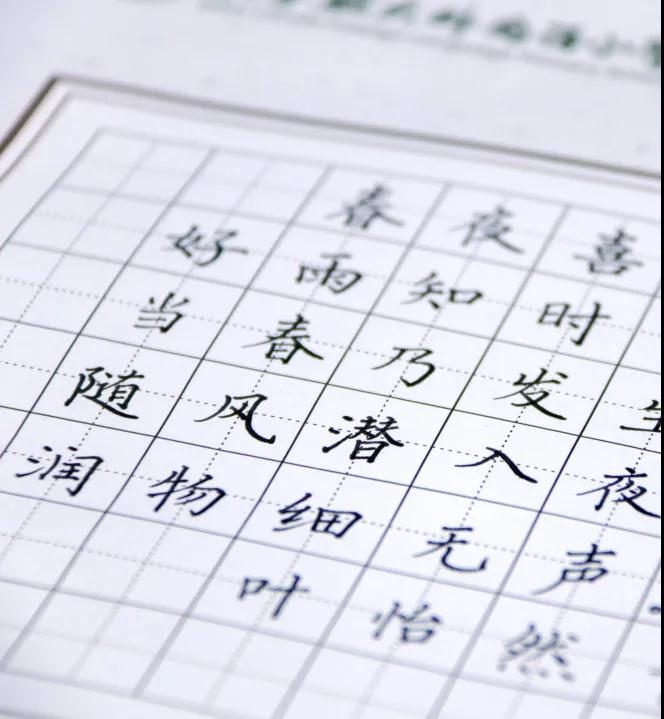 春夜喜
好雨知时
当春乃发生
随风潜入夜
润物细无声
叶怡然